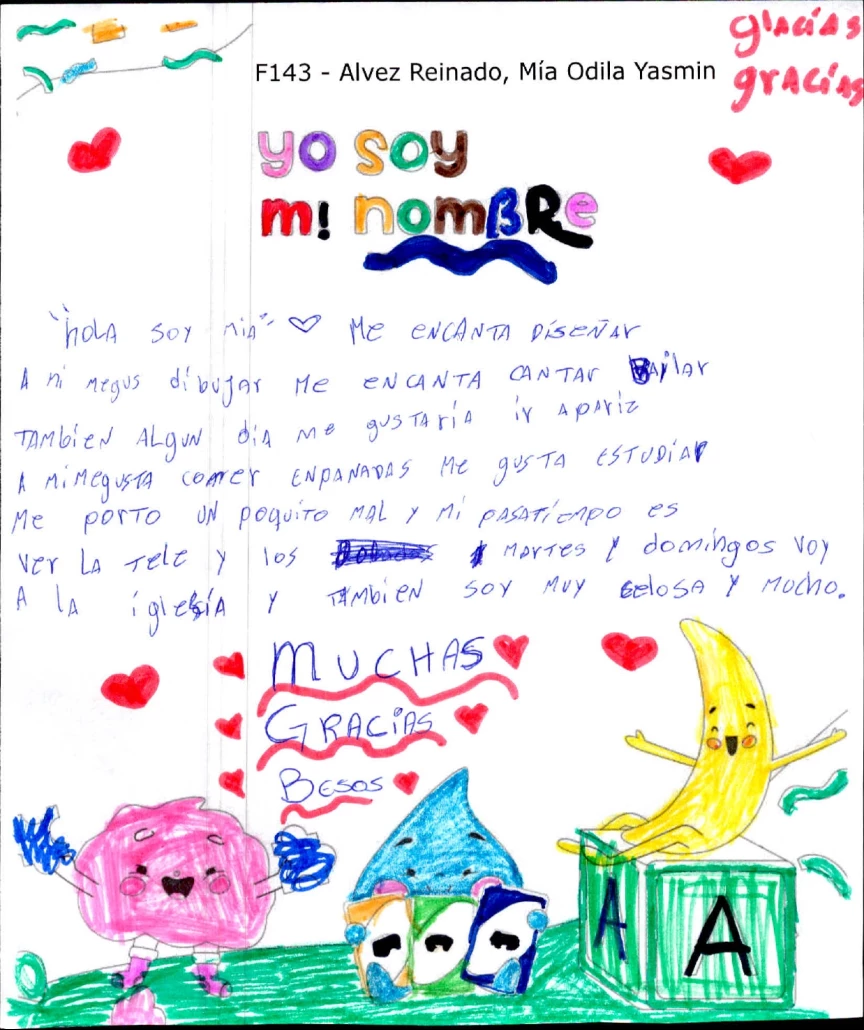 glacias
gracias
F143 - Alvez Reinado, Mía Odila Yasmin
yo soy
mi nomBRe
"hola soy mia" ♡ Me encanta diseñar
A mi megus dibujar me encanta cantar Bailar
también algun dia me gustaría ir apariz
A mimegusta comer enpanadas me gusta estudiar
me porto un poquito mal y mi pasatiempo es
ver la tele y los martes y domingos voy
A la iglesia y también soy muy selosa y mucho.
MUCHAS
GRACIAS
Besos
A A